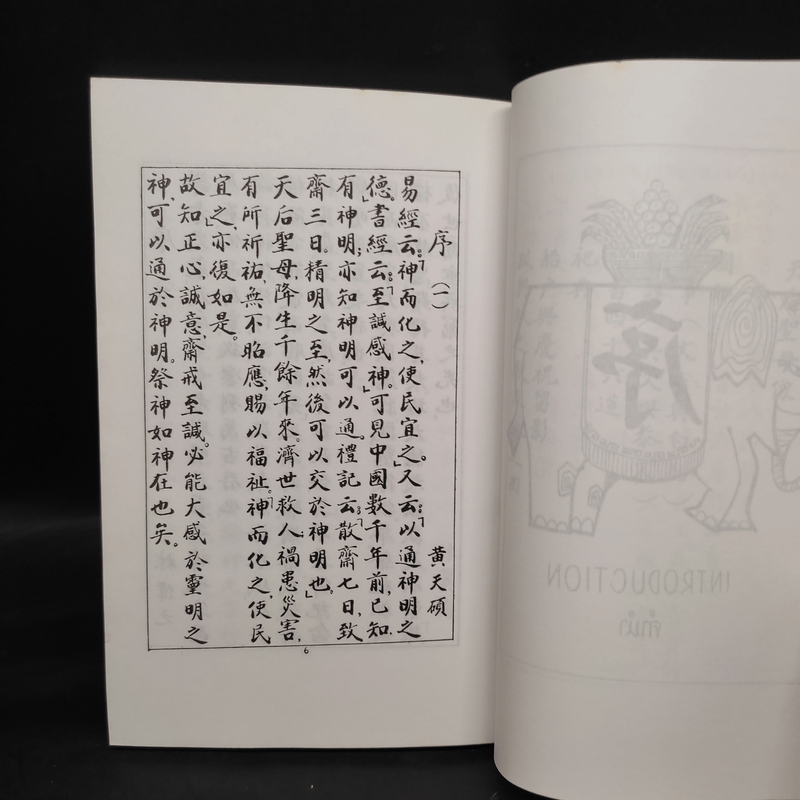 序(一) 黄天碩
易經云:「神而化之,使民宜之。」又云:「以通神明之
德。」書經云:「至諴感神。」可見中國數千年前,已知
有神明;亦知神明可以通。禮記云:「散齋七日,致
齋三日。精明之至,然後可以交於神明也。」
天后聖母,降生千餘年來。濟世救人,禍患災害,
有所祈祐,無不昭應賜以福祉。「神而化之,使民
宜之」,亦復如是。
故知正心,誠意,齋戒至諴。必能大感於靈明之
神,可以通於神明。祭神如神在也矣。
6
序
INTRODUCTION
คำนำ